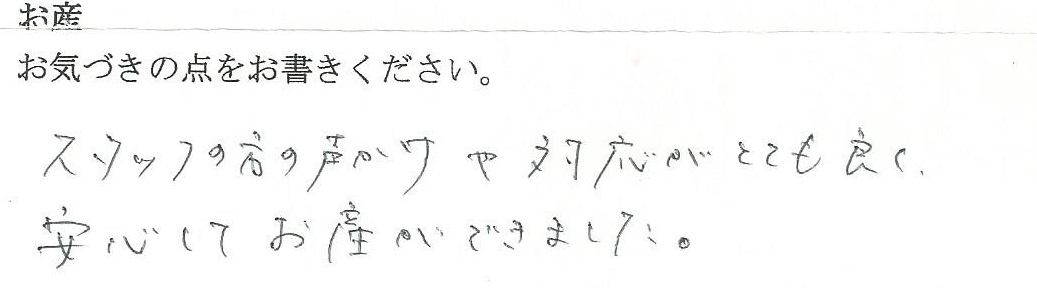 お産
お気づきの点をお書きください。
スタッフの方の声かけや対応がとても良く、
安心してお産ができました。